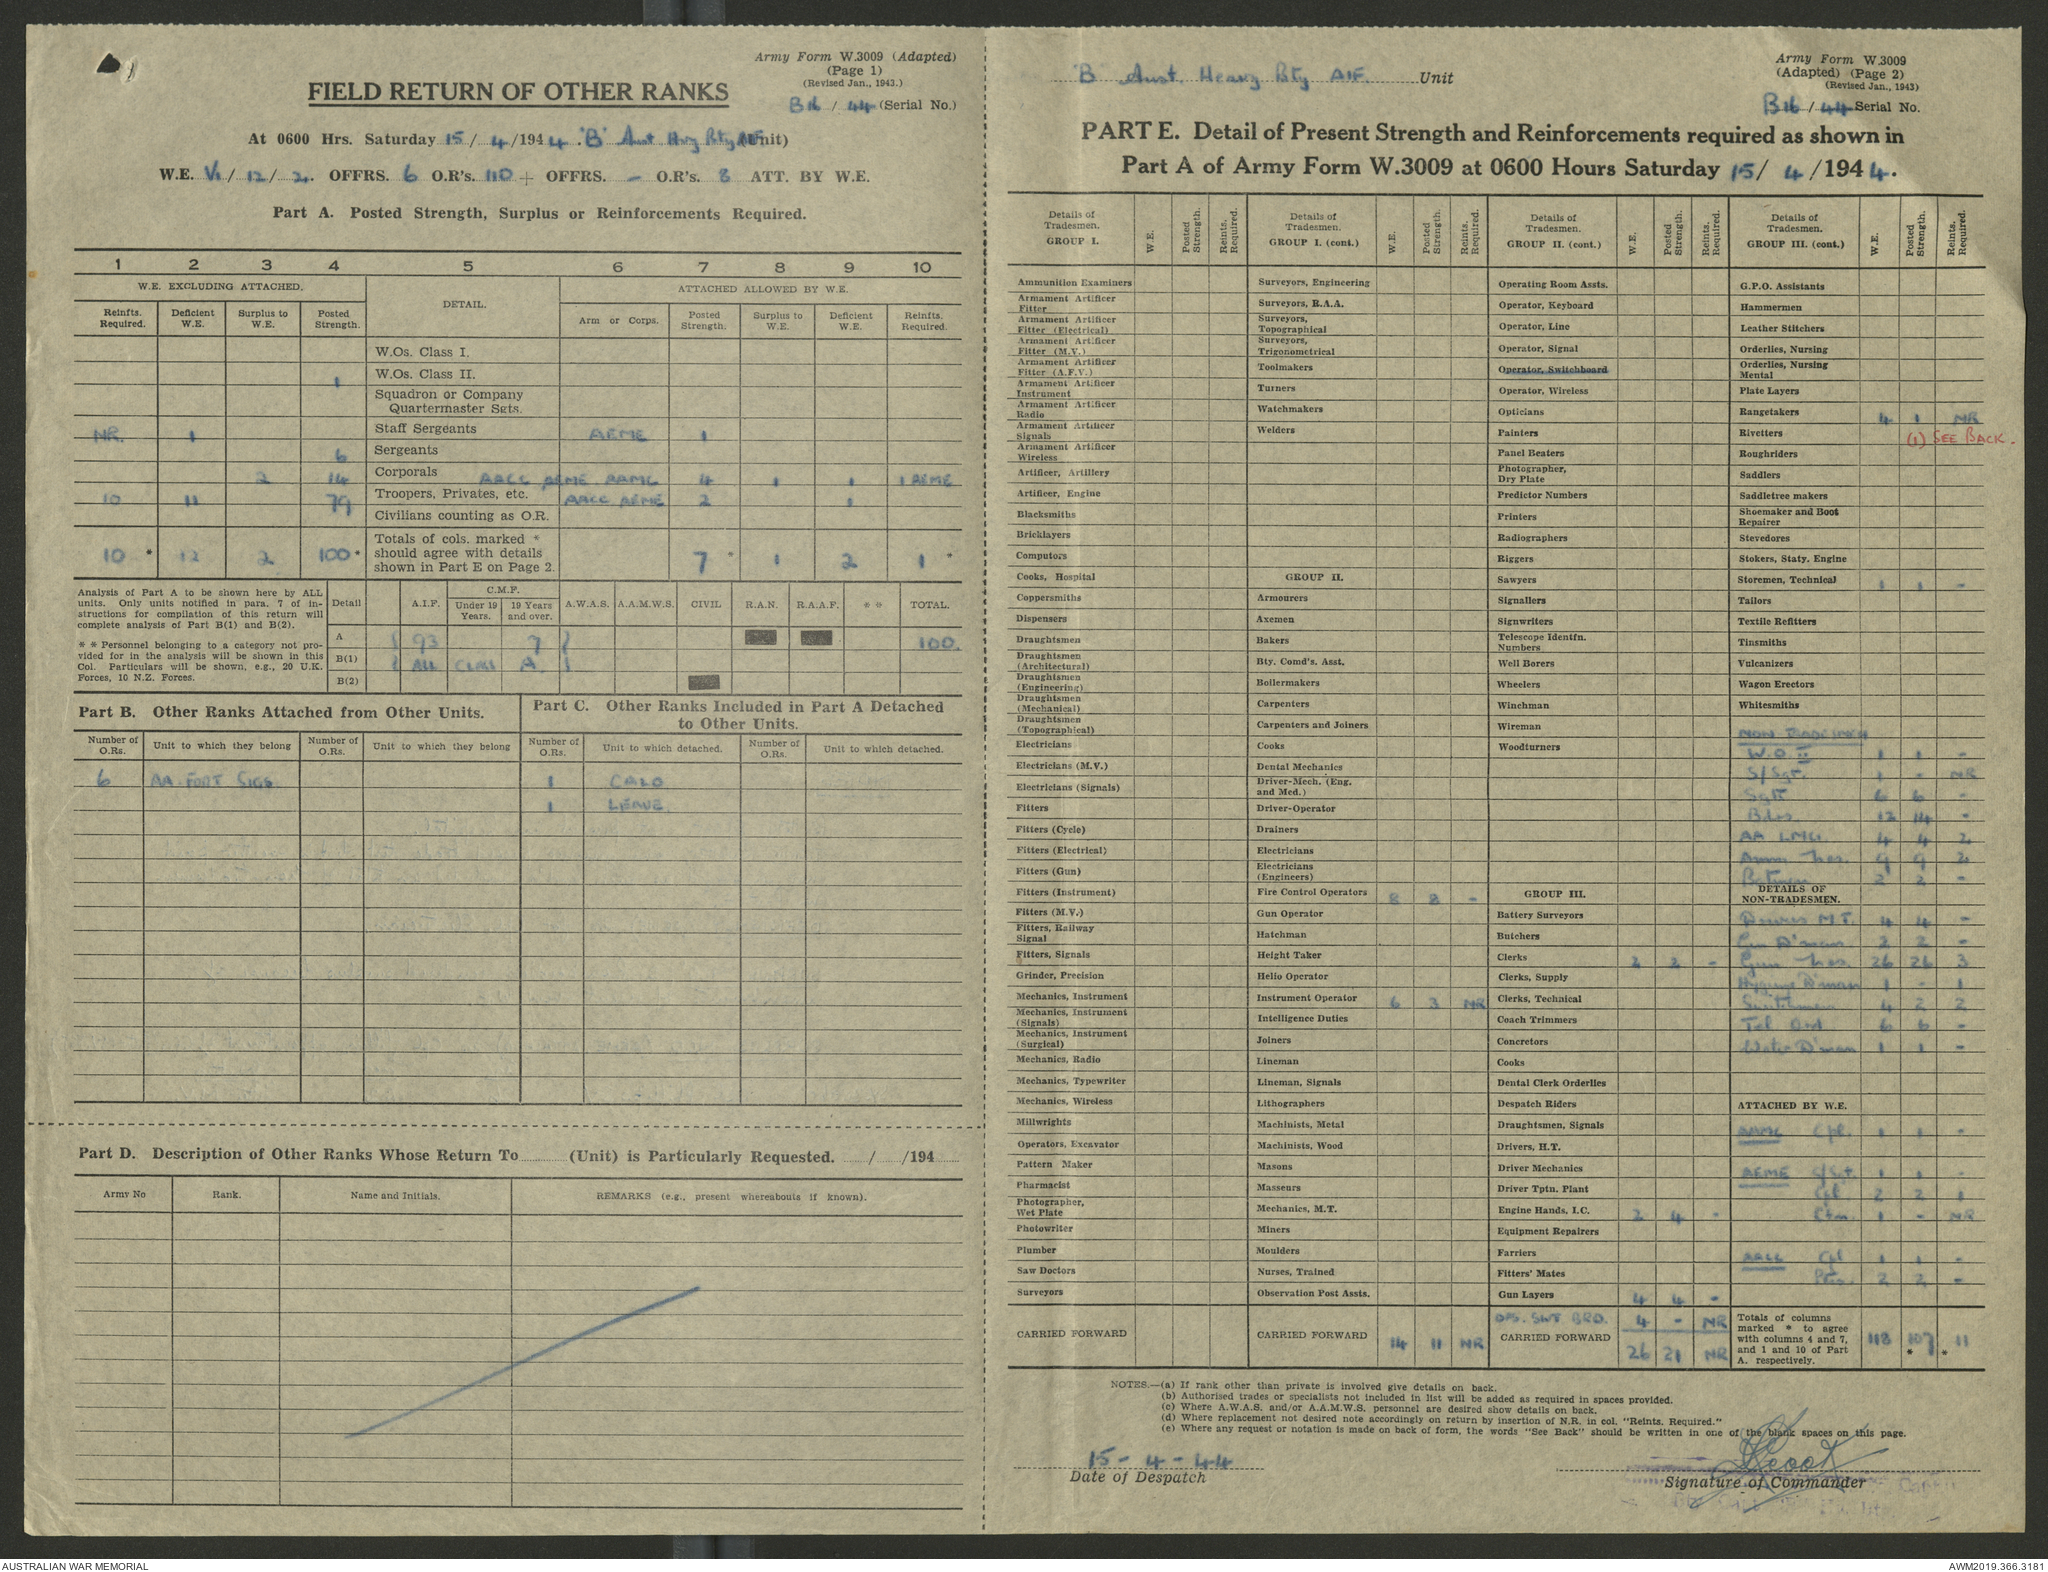 Army Form W.3009 (Adapted)
(Page 1)
(Revised Jan., 1943.)
B16 / 44 (Serial No.)
FIELD RETURN OF OTHER RANKS
At 0600 Hrs. Saturday 15 / 4 /1944. 'B' Aust Hvy Bty AIF (Unit)
W.E. VI / 12 / 2. OFFRS. 6 O.R's. 110 + OFFRS. - O.R's. 8 ATT. BY W.E.
Part A. Posted Strength, Surplus or Reinforcements Required.
1 2 3 4 5 6 7 8 9 10
W.E. EXCLUDING ATTACHED. DETAIL. ATTACHED ALLOWED BY W.E.
Reinfts. Required. Deficient W.E. Surplus to W.E. Posted Strength. Arm or Corps. Posted Strength. Surplus to W.E. Deficient W.E. Reinfts. Required.
W.Os. Class I.
1 W.Os. Class II.
Squadron or Company Quartermaster Sgts.
NR. 1 Staff Sergeants AEME 1
6 Sergeants
2 14 Corporals AACC AEME AAMC 4 1 1 1 AEME
10 11 79 Troopers, Privates, etc. AACC AEME 2 1
Civilians counting as O.R.
10 * 12 2 100 * Totals of cols. marked * should agree with details shown in Part E on Page 2. 7 * 1 2 1 *
Analysis of Part A to be shown here by ALL units. Only units notified in para. 7 of instructions for compilation of this return will complete analysis of Part B(1) and B(2).
* * Personnel belonging to a category not provided for in the analysis will be shown in this Col. Particulars will be shown, e.g., 20 U.K. Forces, 10 N.Z. Forces.
Detail A.I.F. C.M.F. Under 19 Years. 19 Years and over. A.W.A.S. A.A.M.W.S. CIVIL R.A.N. R.A.A.F. * * TOTAL.
A 93 7 100.
B(1) ALL CLASS A
B(2)
Part B. Other Ranks Attached from Other Units.
Part C. Other Ranks Included in Part A Detached to Other Units.
Number of O.Rs. Unit to which they belong Number of O.Rs. Unit to which they belong Number of O.Rs. Unit to which detached. Number of O.Rs. Unit to which detached.
6 AA FORT SIGS. 1 CALO
1 LEAVE.
Part D. Description of Other Ranks Whose Return To (Unit) is Particularly Requested. / /194
Army No Rank. Name and Initials. REMARKS (e.g., present whereabouts if known).
'B' Aust. Heavy Bty AIF. Unit
Army Form W.3009
(Adapted) (Page 2)
(Revised Jan., 1943)
B16 / 44 Serial No.
PART E. Detail of Present Strength and Reinforcements required as shown in
Part A of Army Form W.3009 at 0600 Hours Saturday 15 / 4 /1944.
Details of Tradesmen. GROUP I. W.E. Posted Strength. Reints. Required.
Ammunition Examiners
Armament Artificer Fitter
Armament Artificer Fitter (Electrical)
Armament Artificer Fitter (M.V.)
Armament Artificer Fitter (A.F.V.)
Armament Artificer Instrument
Armament Artificer Radio
Armament Artificer Signals
Armament Artificer Wireless
Artificer, Artillery
Artificer, Engine
Blacksmiths
Bricklayers
Computors
Cooks, Hospital
Coppersmiths
Dispensers
Draughtsmen
Draughtsmen (Architectural)
Draughtsmen (Engineering)
Draughtsmen (Mechanical)
Draughtsmen (Topographical)
Electricians
Electricians (M.V.)
Electricians (Signals)
Fitters
Fitters (Cycle)
Fitters (Electrical)
Fitters (Gun)
Fitters (Instrument)
Fitters (M.V.)
Fitters, Railway Signal
Fitters, Signals
Grinder, Precision
Mechanics, Instrument
Mechanics, Instrument (Signals)
Mechanics, Instrument (Surgical)
Mechanics, Radio
Mechanics, Typewriter
Mechanics, Wireless
Millwrights
Operators, Excavator
Pattern Maker
Pharmacist
Photographer, Wet Plate
Photowriter
Plumber
Saw Doctors
Surveyors
CARRIED FORWARD
Details of Tradesmen. GROUP I. (cont.) W.E. Posted Strength. Reints. Required.
Surveyors, Engineering
Surveyors, R.A.A.
Surveyors, Topographical
Surveyors, Trigonometrical
Toolmakers
Turners
Watchmakers
Welders
GROUP II.
Armourers
Axemen
Bakers
Bty. Comd's. Asst.
Boilermakers
Carpenters
Carpenters and Joiners
Cooks
Dental Mechanics
Driver-Mech. (Eng. and Med.)
Driver-Operator
Drainers
Electricians
Electricians (Engineers)
Fire Control Operators 8 8 -
Gun Operator
Hatchman
Height Taker
Helio Operator
Instrument Operator 6 3 NR
Intelligence Duties
Joiners
Lineman
Lineman, Signals
Lithographers
Machinists, Metal
Machinists, Wood
Masons
Masseurs
Mechanics, M.T.
Miners
Moulders
Nurses, Trained
Observation Post Assts.
CARRIED FORWARD 14 11 NR
Details of Tradesmen. GROUP II. (cont.) W.E. Posted Strength. Reints. Required.
Operating Room Assts.
Operator, Keyboard
Operator, Line
Operator, Signal
Operator, Switchboard
Operator, Wireless
Opticians
Painters
Panel Beaters
Photographer, Dry Plate
Predictor Numbers
Printers
Radiographers
Riggers
Sawyers
Signallers
Signwriters
Telescope Identfn. Numbers
Well Borers
Wheelers
Winchman
Wireman
Woodturners
GROUP III.
Battery Surveyors
Butchers
Clerks 2 2 -
Clerks, Supply
Clerks, Technical
Coach Trimmers
Concretors
Cooks
Dental Clerk Orderlies
Despatch Riders
Draughtsmen, Signals
Drivers, H.T.
Driver Mechanics
Driver Tptn. Plant
Engine Hands, I.C. 2 4 -
Equipment Repairers
Farriers
Fitters' Mates
Gun Layers 4 4 -
OPS. SWT BRD. 4 - NR
CARRIED FORWARD 26 21 NR
Details of Tradesmen. GROUP III. (cont.) W.E. Posted Strength. Reints. Required.
G.P.O. Assistants
Hammermen
Leather Stitchers
Orderlies, Nursing
Orderlies, Nursing Mental
Plate Layers
Rangetakers 4 1 NR
Rivetters (1) SEE BACK.
Roughriders
Saddlers
Saddletree makers
Shoemaker and Boot Repairer
Stevedores
Stokers, Staty. Engine
Storemen, Technical 1 1 -
Tailors
Textile Refitters
Tinsmiths
Vulcanizers
Wagon Erectors
Whitesmiths
NON TRADESMEN
W.O. II 1 1 -
S/Sgt. 1 - NR
Sgts 6 6 -
Bdrs 12 14 -
AA LMG. 4 4 2
Ammn Nos. 9 9 2
Batmen 2 2 -
DETAILS OF NON-TRADESMEN.
Drivers M.T. 4 4 -
2 2 -
Gun Nos. 26 26 3
Hygiene D'man 1 - 1
4 2 2
Tel Ord 6 6 -
Water D'man 1 1 -
ATTACHED BY W.E.
AAMC Cpl. 1 1 -
AEME S/Sgt 1 1 -
Cpl 2 2 1
1 - NR
AACC Cpl 1 1 -
Ptes. 2 2 -
Totals of columns marked * to agree with columns 4 and 7, and 1 and 10 of Part A. respectively. 118 107 * 11 *
NOTES.—(a) If rank other than private is involved give details on back.
(b) Authorised trades or specialists not included in list will be added as required in spaces provided.
(c) Where A.W.A.S. and/or A.A.M.W.S. personnel are desired show details on back.
(d) Where replacement not desired note accordingly on return by insertion of N.R. in col. "Reints. Required."
(e) Where any request or notation is made on back of form, the words "See Back" should be written in one of the blank spaces on this page.
15-4-44
Date of Despatch
Signature of Commander
AUSTRALIAN WAR MEMORIAL
AWM2019.366.3181